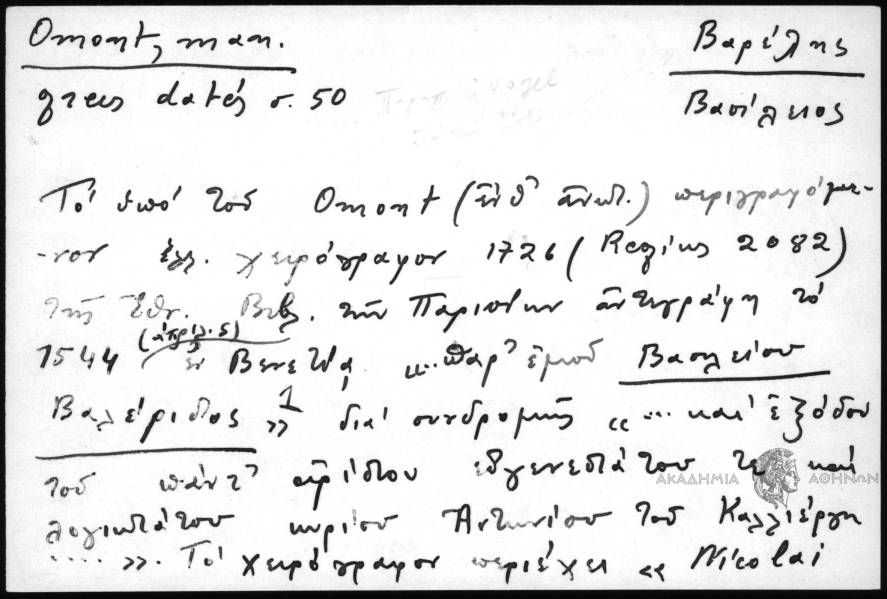 Omont, man.
grecs datés σ. 50
Βαρέλης
Βασίλειος
Τό ὑπό τοῦ Omont (ἔνθ' ἀνωτ.) περιγραφόμε-
-νον ἑλλ. χειρόγραφον 1726 (Regius 2082)
τῆς Ἐθν. Βιβλ. τῶν Παρισίων ἀντεγράφη τό
1544 (ἀπριλ. 5) ἐν Βενετίᾳ «...παρ' ἐμοῦ Βασιλείου
Βαλέριδος 1 » διά συνδρομῆς «... καί ἐξόδου
τοῦ πάντ' εὐγενεστάτου τε καί
λογιωτάτου κυρίου Ἀντωνίου τοῦ Καλλιέργη
....». Τό χειρόγραφον περιέχει « Nicolai
ΑΚΑΔΗΜΙΑ ΑΘΗΝΩΝ